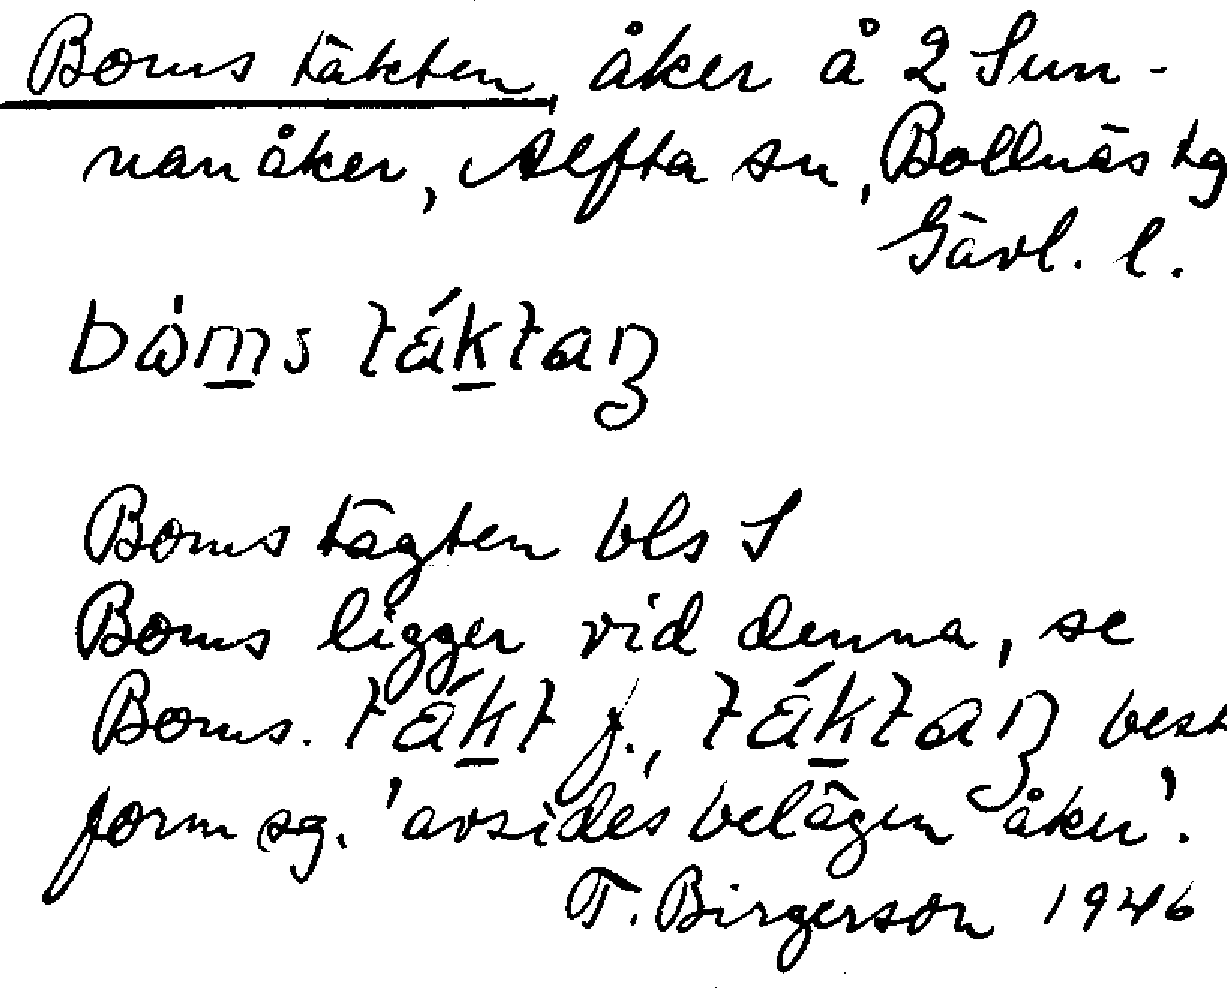 Boms täkten, åker å 2 Sun-
nanåker, Alfta sn, Bollnäs tg
Gävl. l.
bòm̲s ták̲taɳ
Boms tägten bls S
Boms ligger vid denna, se
Boms. ták̲t f., ták̲taɳ best
form sg. 'avsides belägen åker'.
T. Birgerson 1946